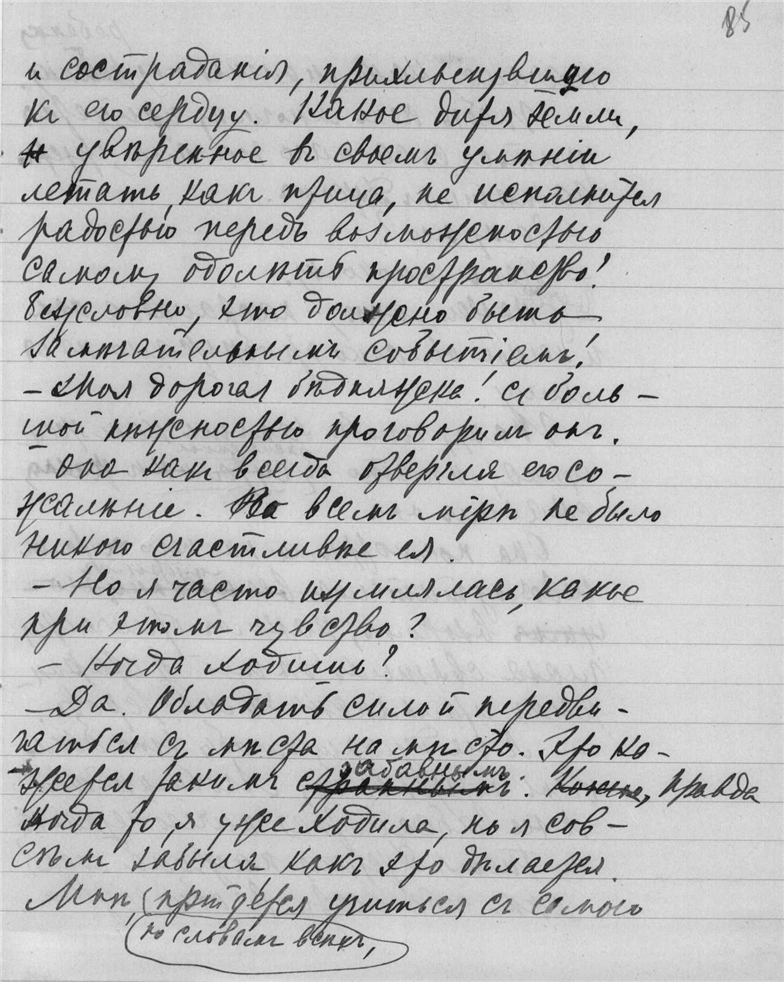 85
и состраданiя, прихлынувшаго
къ его сердцу. Какое дитя земли,
увѣренное въ своемъ умѣнiи
летать, какъ птица, не исполнится
радостью передъ возможностью
самому одолѣть пространство!
безусловно, это должно быть
замѣчательнымъ событiемъ!
– Моя дорогая бѣдняжка! съ боль–
шой нѣжностью проговорилъ онъ.
– Она какъ всегда отвергла его со–
жалѣнiе. Во всемъ мiрѣ не было
никого счастливѣе ея.
– Но я часто изумлялась, какое
при этомъ чувство?
– Когда ходишь?
– Да. Обладать силой передви–
гаться съ мѣста на мѣсто. Это ка–
забавнымъ.
жется такимъ страннымъ. Конечно, правда
когда то я уже ходила, но я сов–
сѣмъ забыла, какъ это дѣлается.
Мнѣ, придется учиться съ самого
по словамъ всѣхъ,